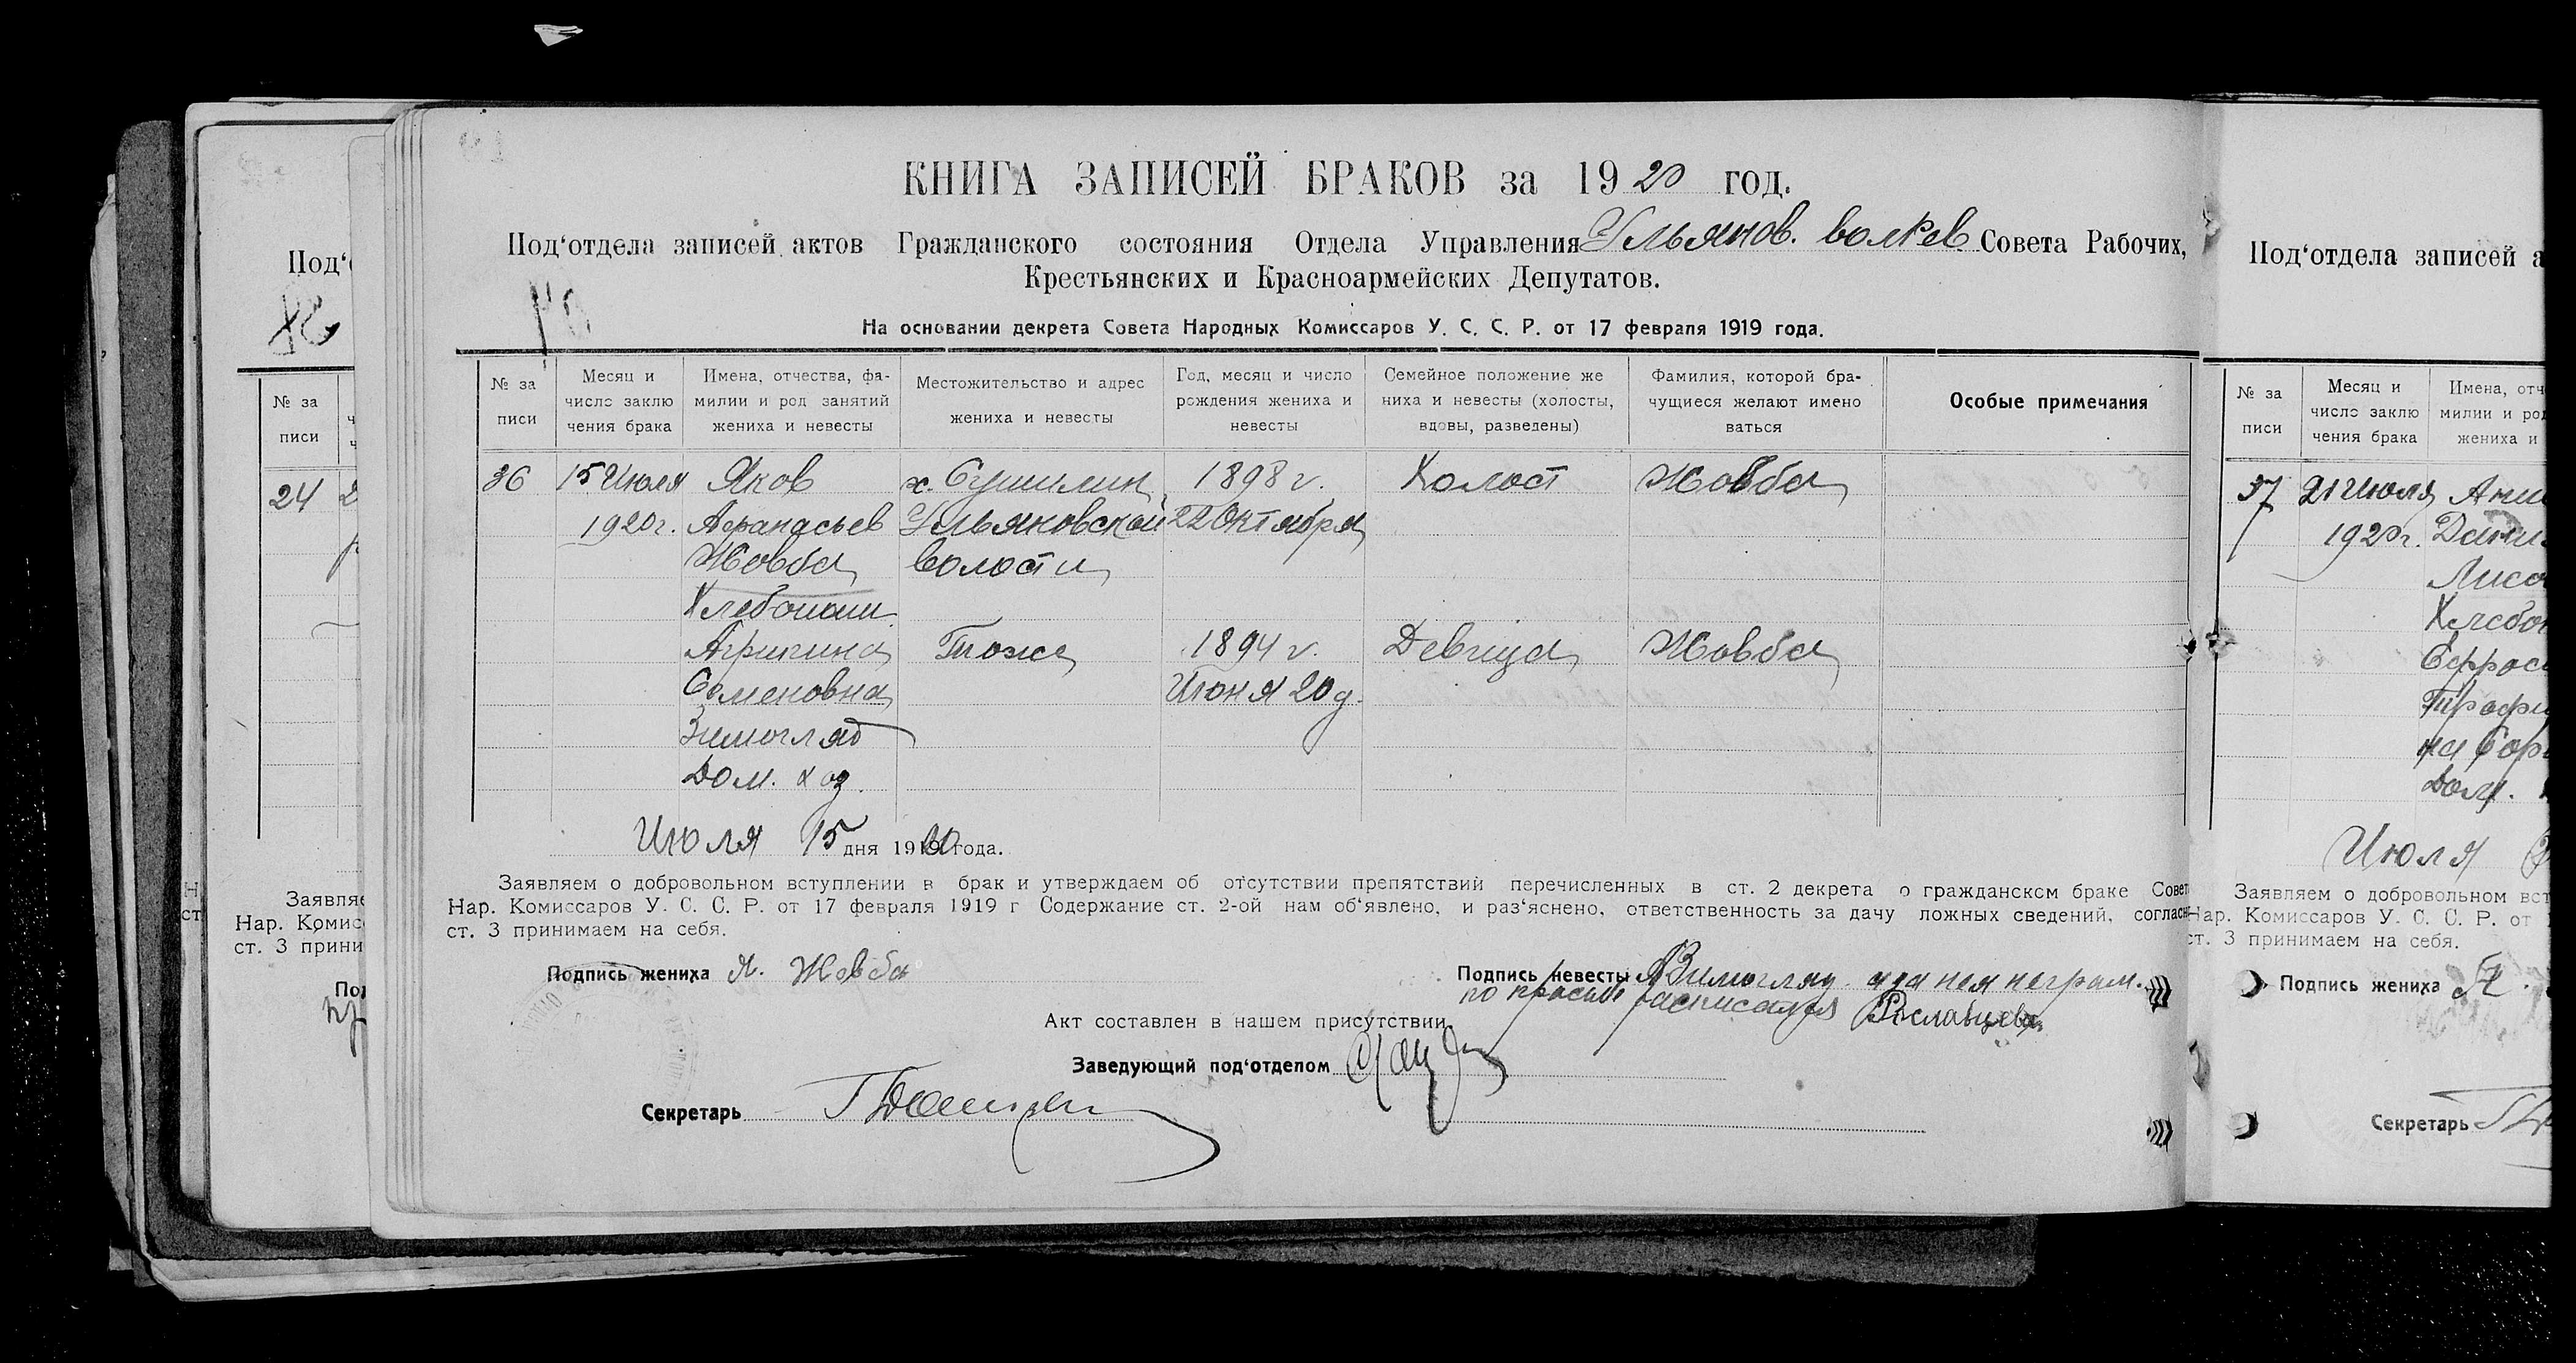 КНИГА ЗАПИСЕЙ БРАКОВ за 1920 год.
Под‘отдела записей актов Гражданского состояния Отдела Управления Ульянов. Совета Рабочих,
Крестьянских и Красноармейских Депутатов.
На основании декрета Совета Народных Комиссаров У. С. С. Р. от 17 февраля 1919 года.
№ за писи
Месяц и число заклю чения брака
Имена, отчества, фа- милии и род занятий жениха и невесты
Местожительство и адрес жениха и невесты
Год, месяц и число рождения жениха и невесты
Семейное положение же ниха и невесты (холосты, вдовы, разведены)
Фамилия, которой бра- чущиеся желают имено ваться
Особые примечания
36 15 Июля Яков х. Сушилин 1898 г. Холост Жовба
1920 г. Афанасьев Ульяновской 22 Октября
Жовба волости
Хлебопаш.
Агрипина Тоже 1894 г. Девица Жовба
Семеновна Июня 20 д.
Зимогляд
Дом. хоз.
Июля 15 дня 1920 года.
Заявляем о добровольном вступлении в брак и утверждаем об отсутствии препятствий перечисленных в ст. 2 декрета о гражданском браке Совет
Нар. Комиссаров У. С. С. Р. от 17 февраля 1919 г Содержание ст. 2-ой нам об‘явлено, и раз‘яснено, ответственность за дачу ложных сведений, соглас
ст. 3 принимаем на себя.
Подпись жениха Я. Жовба
Подпись невесты А Зимогляд а за нея неграм.
по просьбе расписался
Акт составлен в нашем присутствии
Заведующий под‘отделом
Секретарь
Под‘
№ за писи
24
Заявляе
Нар. Комис
ст. 3 прини
Под
Под‘отдела записей а
№ за писи
Месяц и число заклю чения брака
Имена, отч милии и ро жениха и
37 21 Июля
1920 г.
Июля
Заявляем о добровольном вст
Нар. Комиссаров У. С. С. Р. от
ст. 3 принимаем на себя.
Подпись жениха
Секретарь